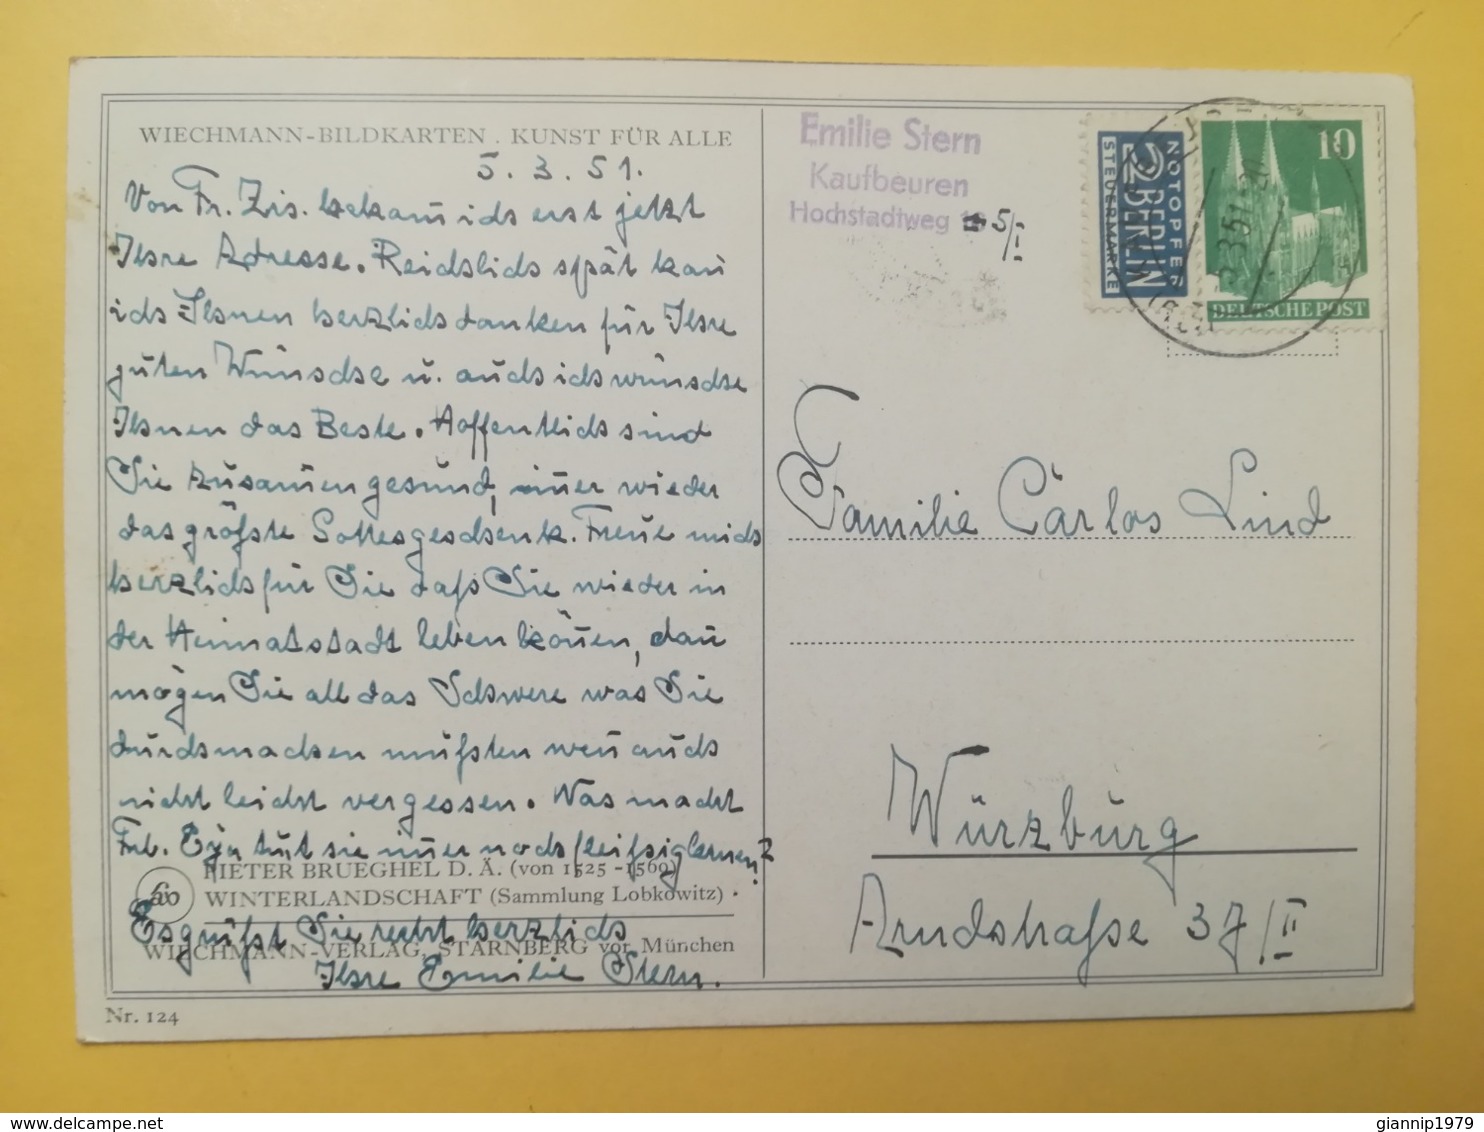 WIECHMANN-BILDKARTEN . KUNST FÜR ALLE
5. 3. 51.
Von Fr. Zis. bekam ich erst jetzt
Ihre Adresse. Reichlich spät kan̄
ich Ihnen herzlich danken für Ihre
guten Wünsche u. auch ich wünsche
Ihnen das Beste. Hoffentlich sind
Sie zusam̄en gesund, im̄er wieder
das größte Gottesgeschenk. Freue mich
herzlich für Sie daß Sie wieder in
der Heimatstadt leben kön̄en, dan̄
mögen Sie all das Schwere was Sie
durchmachen mußten wen̄ auch
nicht leicht vergessen. Was macht
Frl. Eya tut sie im̄er noch fleißig lernen?
PIETER BRUEGHEL D. Ä. (von 1525-1569)
WINTERLANDSCHAFT (Sammlung Lobkowitz) .
Es grüßt Sie recht herzlich
WIECHMANN-VERLAG, STARNBERG vor München
Ihre Emilie Stern.
Nr. 124
Emilie Stern
Kaufbeuren
Hochstadtweg 5/I
NOTOPFER
2 BERLIN
STEUERMARKE
10
DEUTSCHE POST
Familie Carlos Lind
Würzburg
Arndstraße 37/II
giannip1979